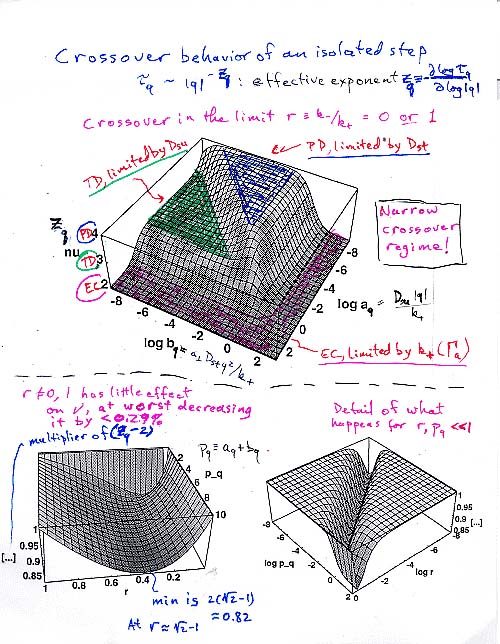 Crossover behavior of an isolated step
τ_q ~ |q|^-z_q : effective exponent z_q ≡ - ∂log τ_q / ∂log|q|
Crossover in the limit r ≡ k-/k+ = 0 or 1
TD, limited by Dsu
PD, limited by Dst
Z_q
nu
PD 4
TD 3
EC 2
-8
-6
-4
-2
0
2
log b_q = a⊥ Dst q²/k+
-8
-6
-4
-2
0
2
log a_q = Dsu |q| / k+
Narrow
crossover
regime!
EC, limited by k+ (Γa)
r≠0, 1 has little effect
on ν, at worst decreasing
it by <0.29%
multiplier of (z_q-2)
Pq = aq + bq.
2
4
6
8
10
p_q
1
0.95
0.9
0.85
[...]
1
0.8
0.6
0.4
0.2
r
min is 2(√2-1)
≈0.82
At r ≈ √2-1
Detail of what
happens for r, pq <<1
1
0.95
0.9
0.85
[...]
-8
-6
-4
-2
0
log p_q
-8
-6
-4
-2
0
log r
2